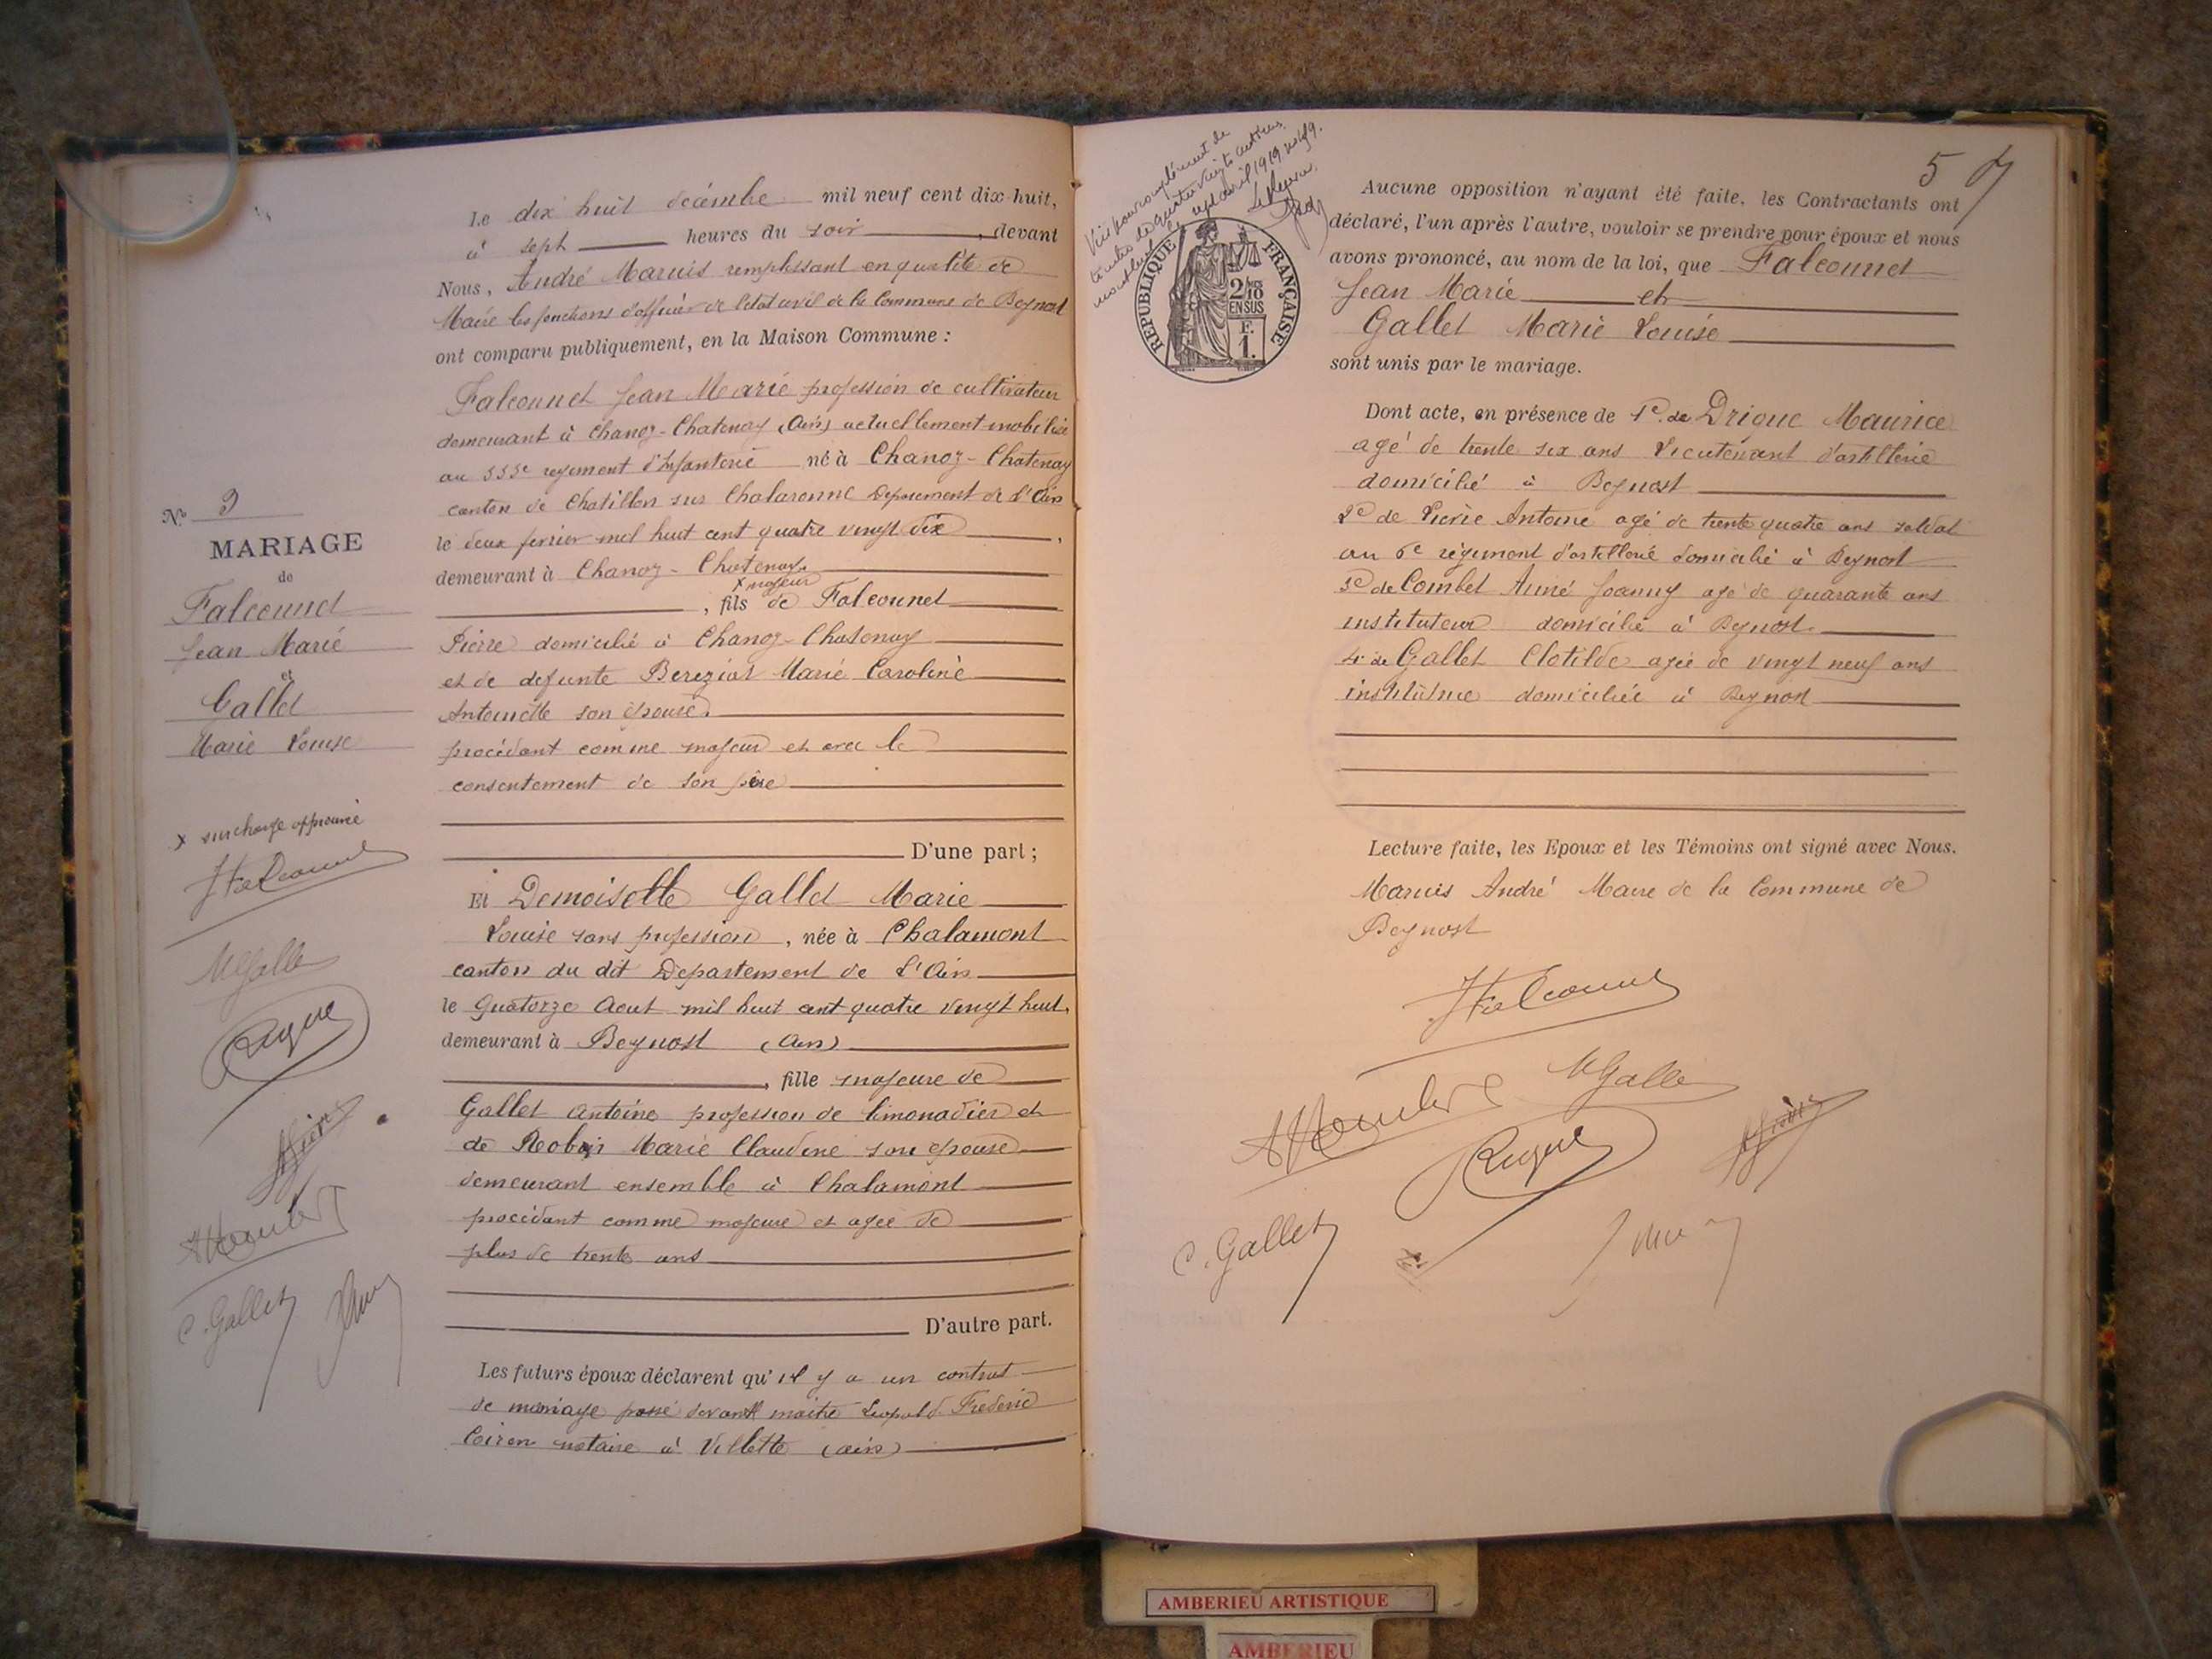 N° 9
MARIAGE
de
Falconnet
Jean Marie
et
Gallet
Marie Louise
x surcharge approuvée
JFalconnet
MGallet
C. Gallet
Le dix huit décembre mil neuf cent dix-huit,
à sept heures du soir, devant
Nous, André Maruis remplissant en qualité de
Maire les fonctions d'officier de l'état civil de la Commune de Beynost
ont comparu publiquement, en la Maison Commune :
Falconnet Jean Marie profession de cultivateur
demeurant à Chanoz-Chatenay (Ain) actuellement mobilisé
au 333e regiment d'Infanterie né à Chanoz-Chatenay
canton de Chatillon sur Chalaronne Département de l'Ain
le deux fevrier mil huit cent quatre vingt dix,
demeurant à Chanoz-Chatenay
x majeur
, fils de Falconnet
Pierre domicilié à Chanoz-Chatenay
et de defunte Bereziat Marie Caroline
Antoinette son épouse.
procédant comme majeur et avec le
consentement de son père
D'une part ;
Et Demoiselle Gallet Marie
Louise sans profession, née à Chalamont
canton du dit Departement de l'Ain
le Quatorze Aout mil huit cent quatre vingt huit,
demeurant à Beynost (Ain)
, fille majeure de
Gallet Antoine profession de limonadier et
de Robin Marie Claudine son epouse
demeurant ensemble à Chalamont
procédant comme majeure et agée de
plus de trente ans
D'autre part.
Les futurs époux déclarent qu'il y a un contrat
de mariage passé devant maitre Leopold Frederic
Coiron notaire à Villette (ain)
5
REPUBLIQUE FRANÇAISE
2/10
EN SUS
F.
1.
Aucune opposition n'ayant été faite, les Contractants ont
déclaré, l'un après l'autre, vouloir se prendre pour époux et nous
avons prononcé, au nom de la loi, que Falconnet
Jean Marie et
Gallet Marie Louise
sont unis par le mariage.
Dont acte, en présence de 1° de Drigue Maurice
agé de trente six ans Lieutenant d'artillerie
domicilié à Beynost
2° de Pierre Antoine agé de trente quatre ans soldat
au 6e régiment d'artillerie domicilié à Beynost
3° de Combet Aimé Joanny agé de quarante ans
instituteur domicilié à Beynost
4° de Gallet Clotilde agée de vingt neuf ans
institutrice domiciliée à Beynost
Lecture faite, les Epoux et les Témoins ont signé avec Nous.
Maruis André Maire de la Commune de
Beynost
JFalconnet
MGallet
C. Gallet
AMBERIEU ARTISTIQUE
AMBERIEU